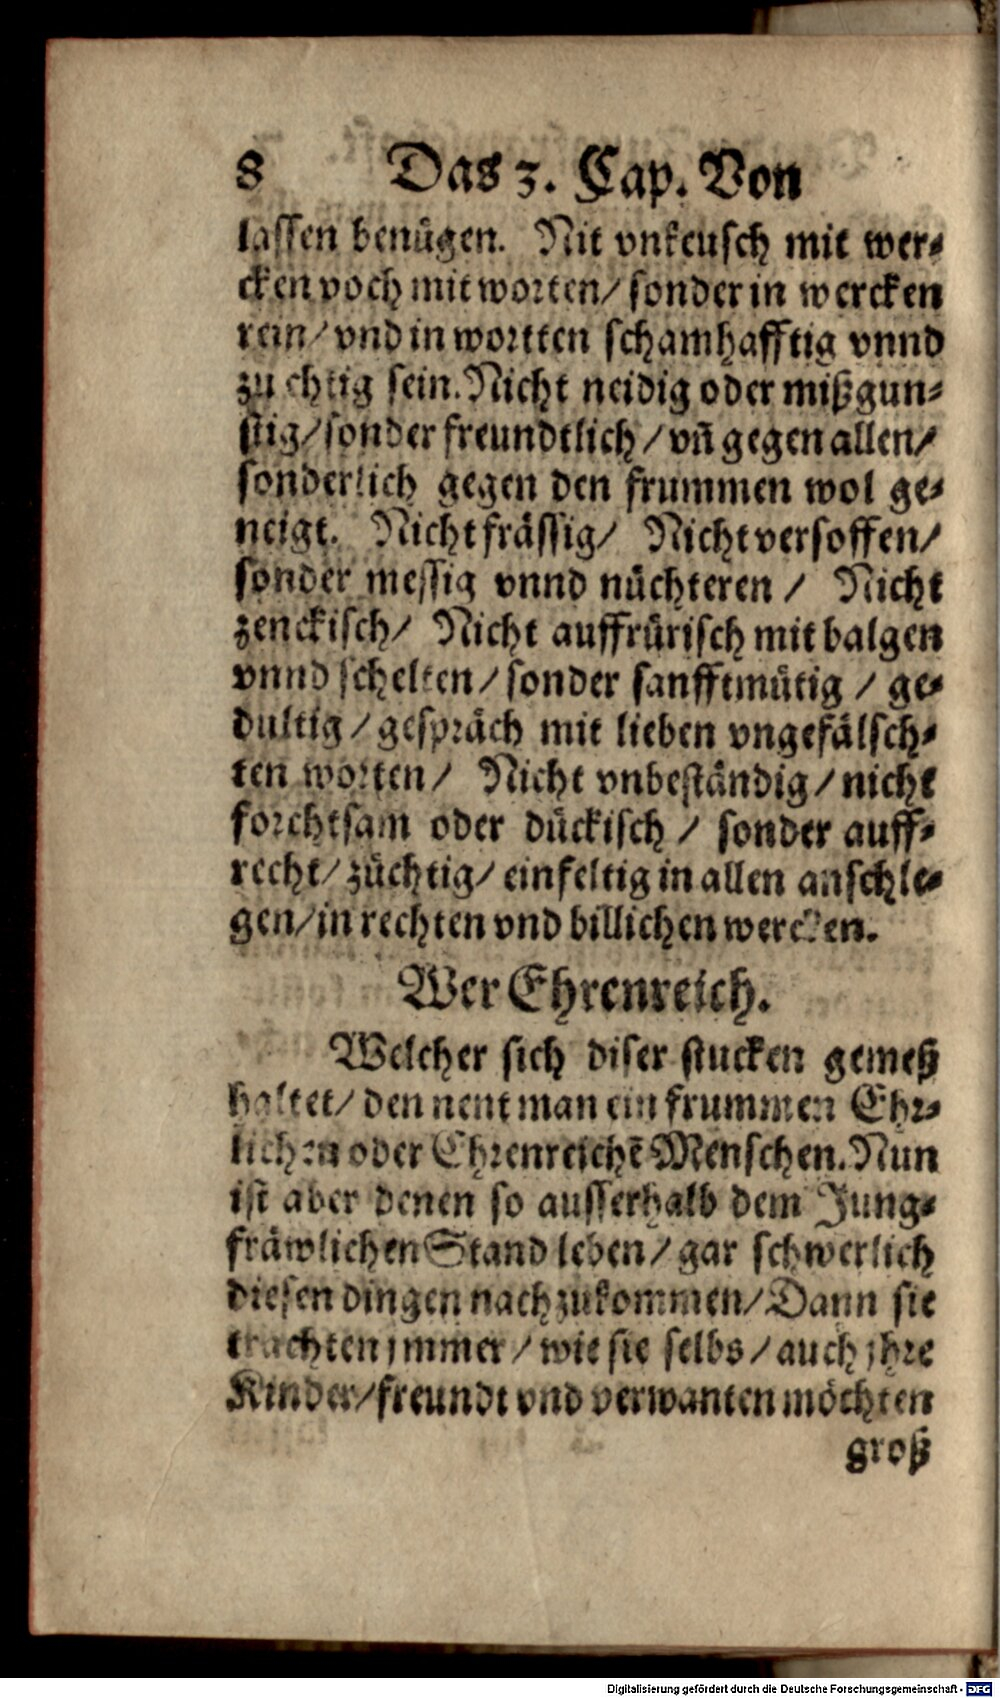 8 Das 3. Cap. Von
lassen benügen. Nit vnkeusch mit wer⸗
cken voch mit worten/ sonder in wercken
rein/ vnd in wortten schamhafftig vnnd
züchtig sein. Nicht neidig oder mißgun⸗
stig/ sonder freundtlich/ vñ gegen allen/
sonderlich gegen den frummen wol ge⸗
neigt. Nicht frässig/ Nicht versoffen/
sonder messig vnnd nüchteren/ Nicht
zenckisch/ Nicht auffrürisch mit balgen
vnnd schelten/ sonder sanfftmütig/ ge⸗
dultig/ gespräch mit lieben vngefälsch⸗
ten worten/ Nicht vnbeständig/ nicht
forchtsam oder dückisch/ sonder auff⸗
recht/ züchtig/ einfeltig in allen anschle⸗
gen/ in rechten vnd billichen wercken.
Wer Ehrenreich.
Welcher sich diser stucken gemeß
haltet/ den nent man ein frummen Ehr⸗
lichen oder Ehrenreichē Menschen. Nun
ist aber denen so ausserhalb dem Jung⸗
fräwlichen Stand leben/ gar schwerlich
diesen dingen nachzukommen/ Dann sie
trachten jmmer/ wie sie selbs/ auch jhre
Kinder/ freundt vnd verwanten möchten
groß
Digitalisierung gefördert durch die Deutsche Forschungsgemeinschaft - DFG